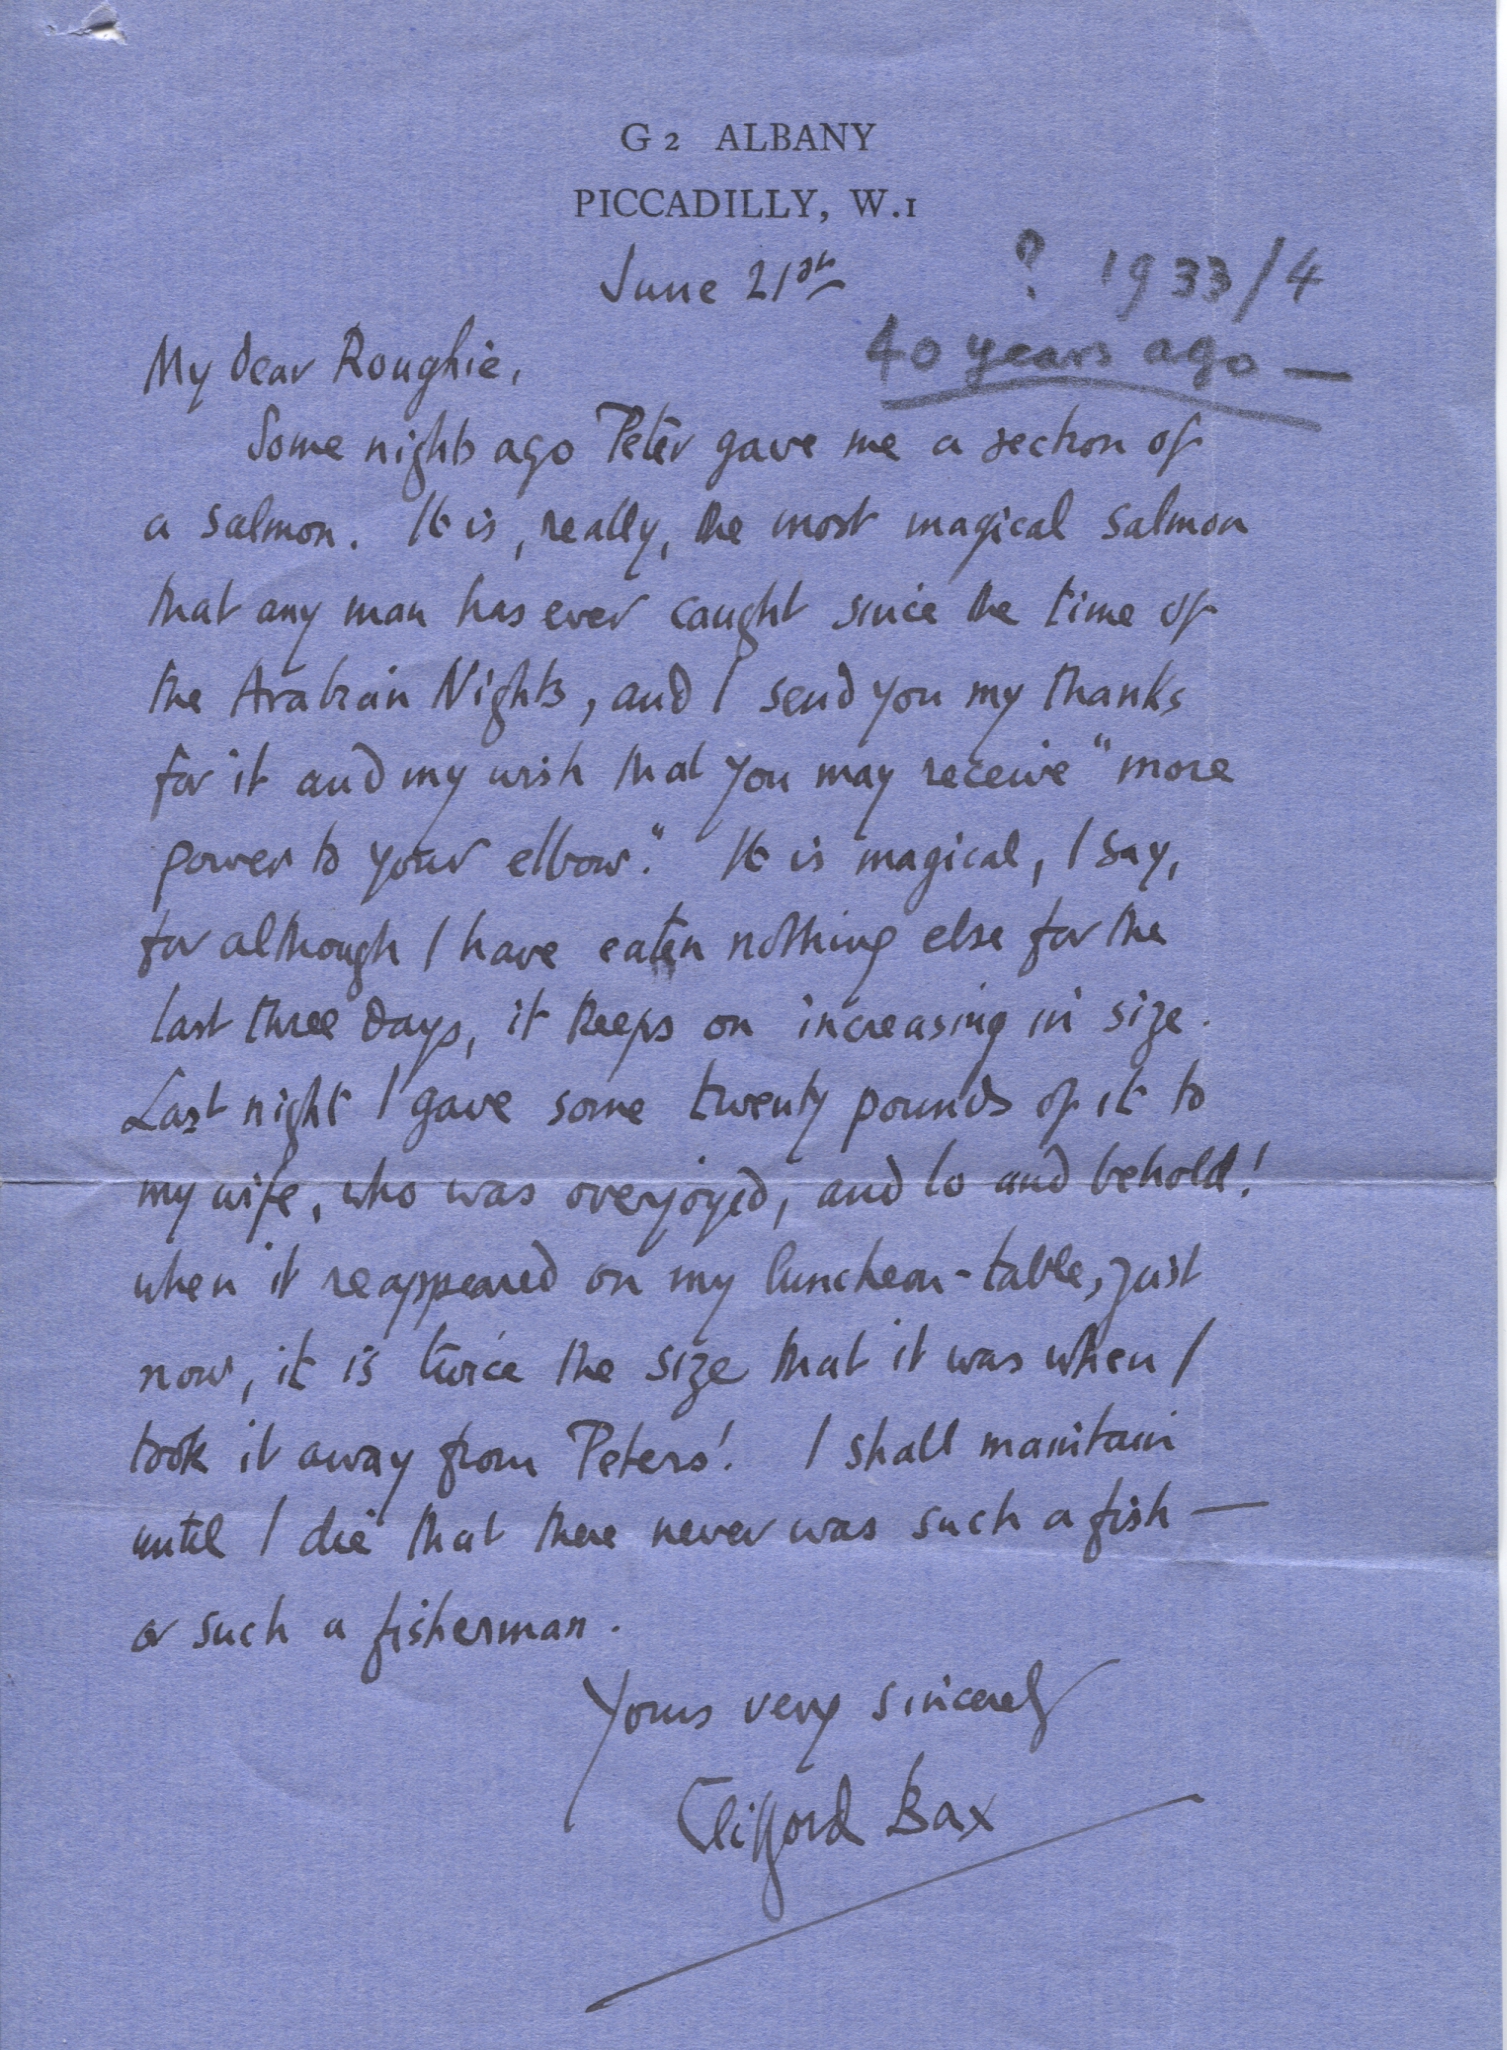 G 2 ALBANY
PICCADILLY, W.1
June 21st
? 1933/4
40 years ago —
My dear Roughie,
Some nights ago Peter gave me a section of
a salmon. It is, really, the most magical salmon
that any man has ever caught since the time of
the Arabian Nights, and I send you my thanks
for it and my wish that you may receive "more
power to your elbow". It is magical, I say,
for although I have eaten nothing else for the
last three days, it keeps on increasing in size.
Last night I gave some twenty pounds of it to
my wife, who was overjoyed, and lo and behold!
when it reappeared on my luncheon-table, just
now, it is twice the size that it was when I
took it away from Peters'! I shall maintain
until I die that there never was such a fish —
or such a fisherman.
Yours very sincerely
Clifford Bax